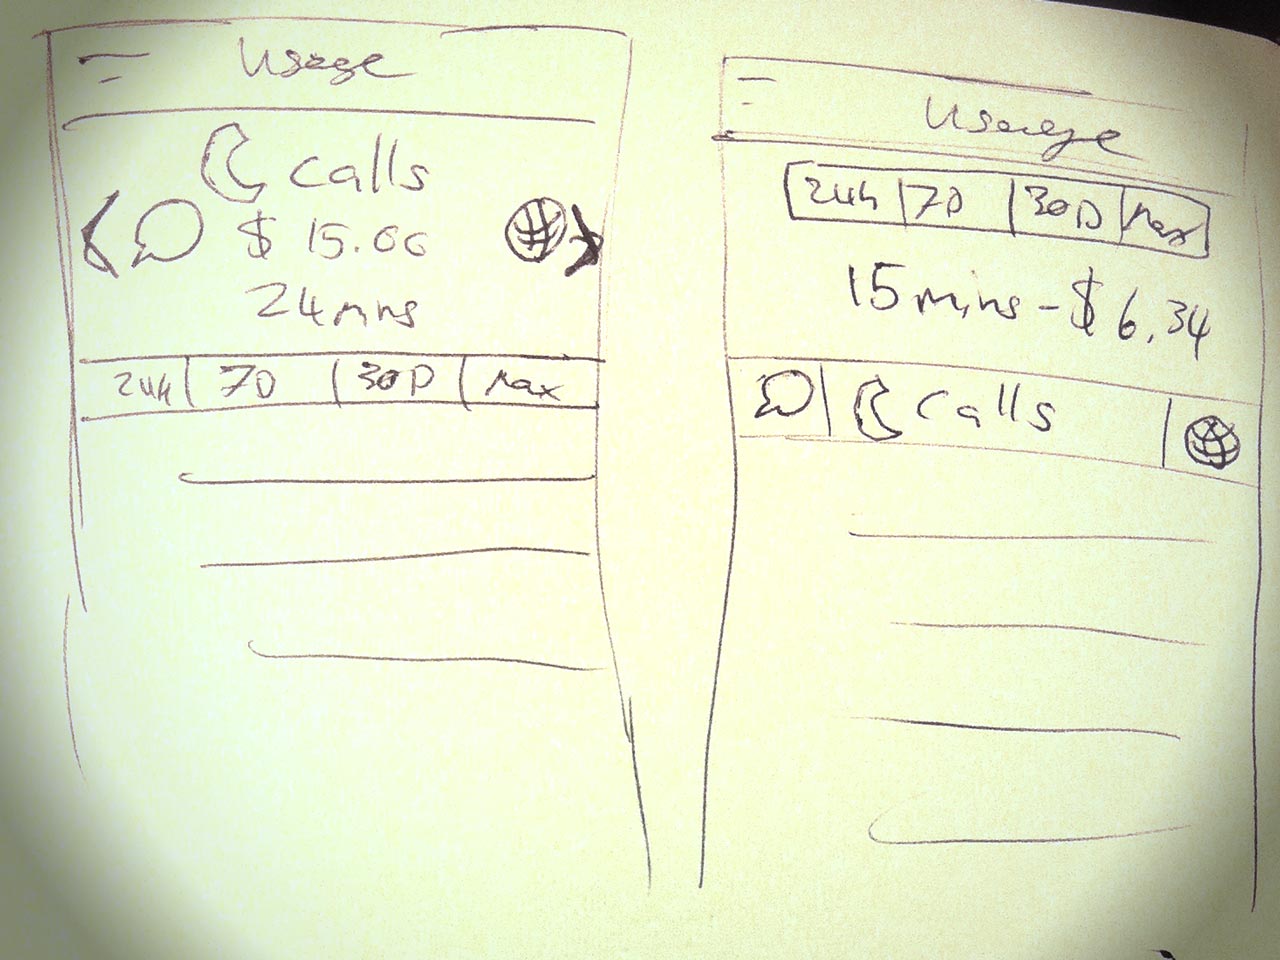 Usage
Calls
$ 15.00
24mns
24h 7D 30D Max
Usage
24h 7D 30D Max
15mins - $6.34
Calls